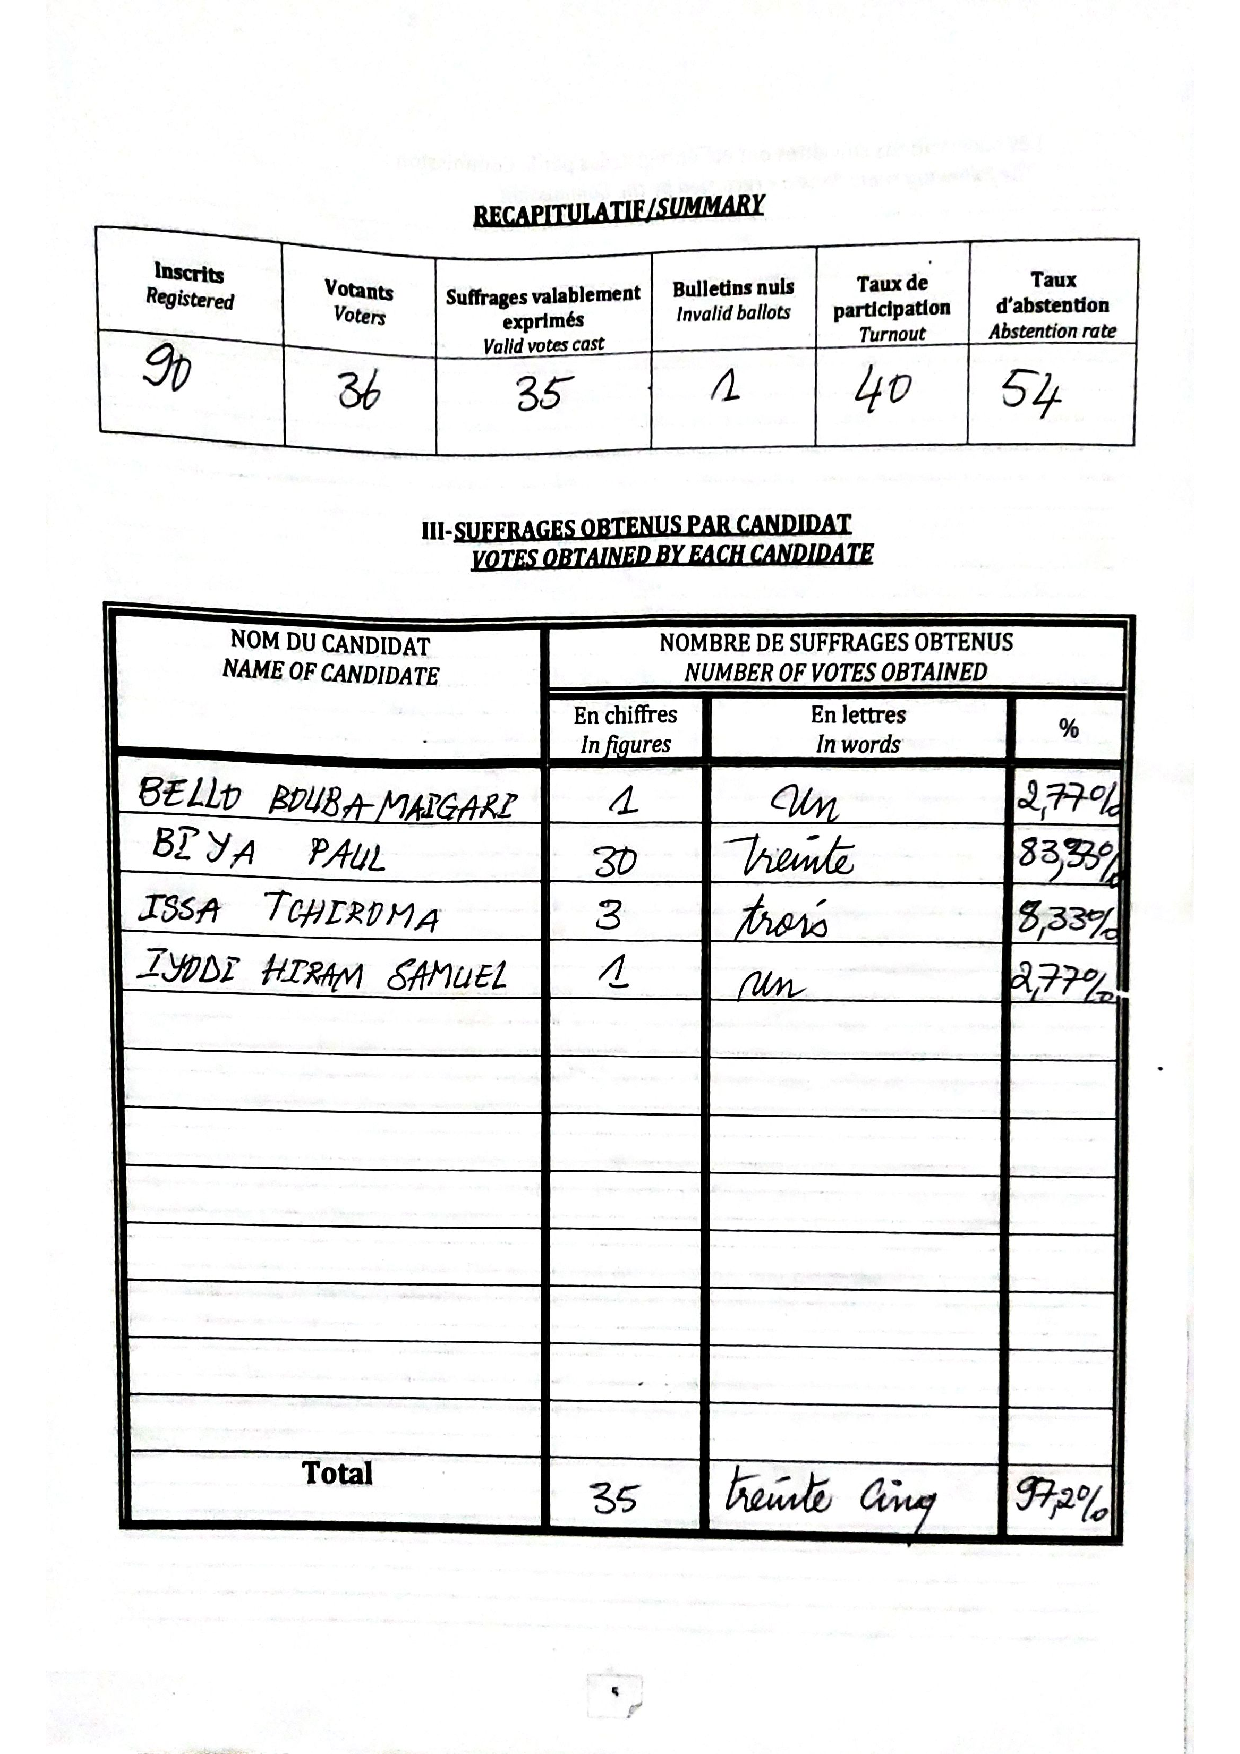 RECAPITULATIF/SUMMARY
Inscrits
Registered
Votants
Voters
Suffrages valablement
exprimés
Valid votes cast
Bulletins nuls
Invalid ballots
Taux de
participation
Turnout
Taux
d'abstention
Abstention rate
90 36 35 1 40 54
III-SUFFRAGES OBTENUS PAR CANDIDAT
VOTES OBTAINED BY EACH CANDIDATE
NOM DU CANDIDAT
NAME OF CANDIDATE
NOMBRE DE SUFFRAGES OBTENUS
NUMBER OF VOTES OBTAINED
En chiffres
In figures
En lettres
In words
%
BELLO BOUBA MAIGARI 1 Un 2,77%
BIYA PAUL 30 Treinte 83,33%
ISSA TCHIROMA 3 trois 8,33%
IYODI HIRAM SAMUEL 1 un 2,77%
Total 35 treinte Cinq 97,2%
5